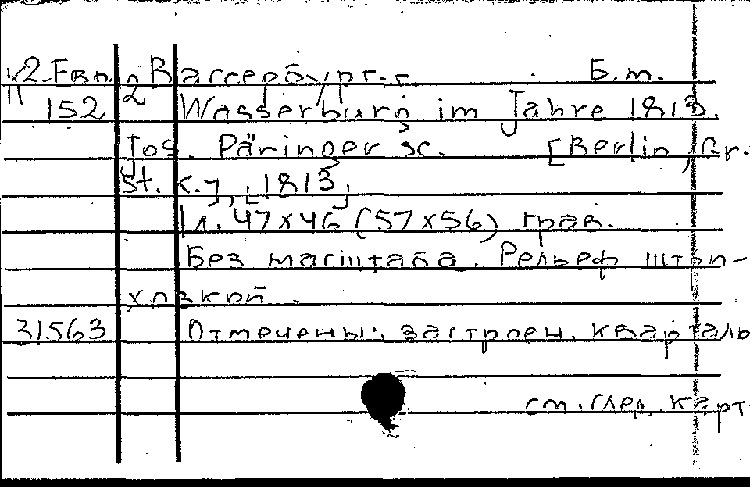 К2-Евр. 2 Вассербург-г. Б.т.
152 Wasserburg im Jahre 1813.
Jos. Päringer sc. [Berlin, Gr.
St. K.], [1813]
1 л. 47x46 (57x56) грав.
Без масштаба. Рельеф штри-
ховкой.
31563 Отмечены: застроен. квартал
см. след. карт